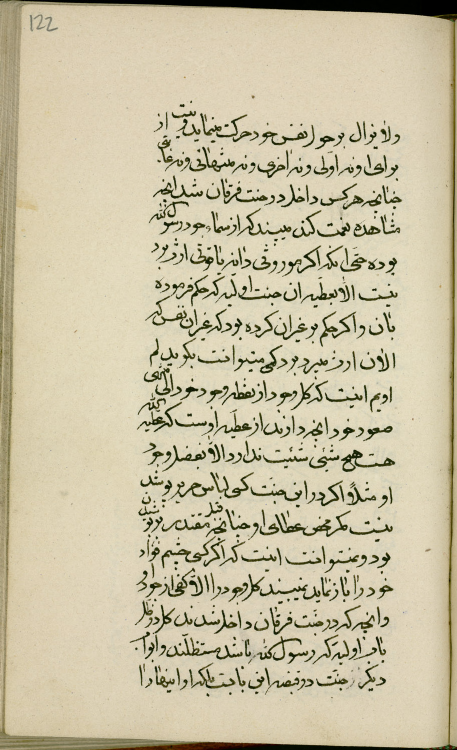 122
ولا يزال بر حول نفس خود حركت مينمايد و نيست از
براى او نه اولى و نه اخرى و نه منتهائى و نه غايتى
چنانچه هر كس داخل در جنت فرقان شد آنچه
مشاهده نعمت كند ميبيند كه از سماء جود رسول الله
بوده حتى آنكه اگر مور وثى دانه ياقوتى ارث برد
نيست الا بعطيه ان جنت اوليه كه حكم فرموده
بان و اگر حكم بر غير ان كرده بود كه غير ان نفس كه
الان ارث ميبرد بود كى ميتوانست بگويد لم
او بم اينست كه كل وجود از نقطه وجود خود الى منتهى
صعود خود آنچه دارند از عطيه اوست كه عطية الله
هست هيچ شئى شيئيت ندارد الا بفضل وجود
او مثلا اگر در اين جنت كسى لباس حرير پوشد
نيست مگر محض عطاى او چنانچه قبل مقتدر بر پوشيدن
بود و نميتوانست اينست كه اگر كسى چشم فؤاد
خود را باز نمايد نميبيند كل وجود را الا كفى از جود او
و آنچه كه در جنت فرقان داخل شدند كل در ظل
باب اوليه كه رسول الله باشد مستظلند و ابواب
ديگر جنت در قبضه اين باب است بلكه او اينها را